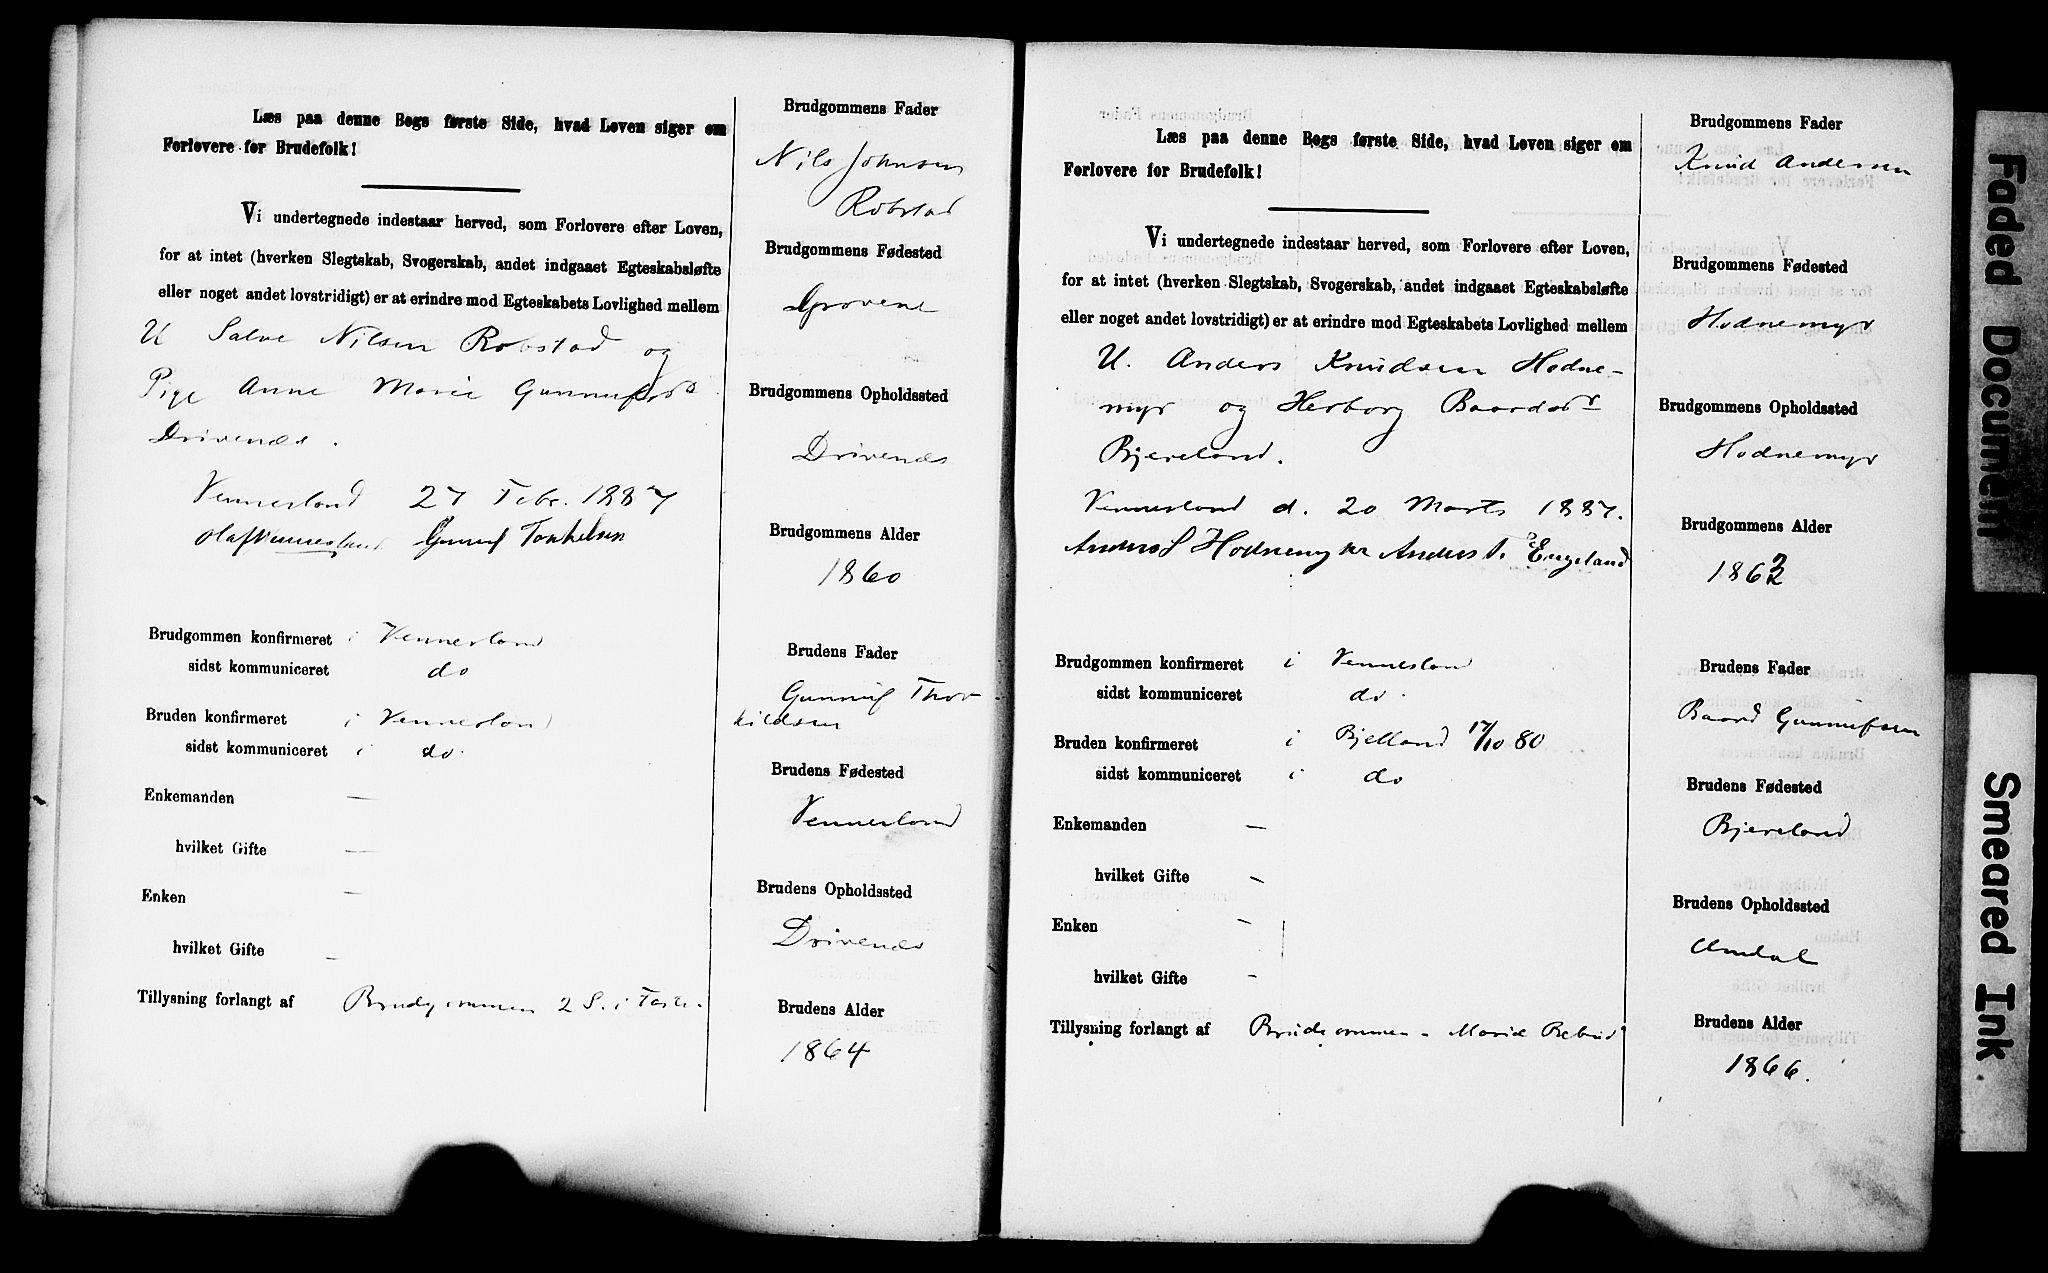 Læs paa denne Bogs første Side, hvad Loven siger om
Forlovere for Brudefolk!
Vi undertegnede indestaar herved, som Forlovere efter Loven,
for at intet (hverken Slegtskab, Svogerskab, andet indgaaet Egteskabsløfte
eller noget andet lovstridigt) er at erindre mod Egteskabets Lovlighed mellem
U Salve Nilsen Robstad og
Pige Anne Marie Gunnufsd
Drivenes.
Vennesland 27 Febr. 1887
Olaf Vennesland Gunnuf Torkelsen
Brudgommen konfirmeret i Vennesland
sidst kommuniceret do
Bruden konfirmeret i Vennesland
sidst kommuniceret i do.
Enkemanden —
hvilket Gifte —
Enken —
hvilket Gifte —
Tillysning forlangt af Brudgommen 2 S. i Faste.
Brudgommens Fader
Nils Johnsen
Robstad
Brudgommens Fødested
Grovene
Brudgommens Opholdssted
Drivenes
Brudgommens Alder
1860
Brudens Fader
Gunnuf Thor-
kildsen
Brudens Fødested
Vennesland
Brudens Opholdssted
Drivenes
Brudens Alder
1864
Læs paa denne Bogs første Side, hvad Loven siger om
Forlovere for Brudefolk!
Vi undertegnede indestaar herved, som Forlovere efter Loven,
for at intet (hverken Slegtskab, Svogerskab, andet indgaaet Egteskabsløfte
eller noget andet lovstridigt) er at erindre mod Egteskabets Lovlighed mellem
U. Anders Knudsen Hodne-
myr og Herborg Baardsdr
Bjereland.
Vennesland d. 20 Marts 1887.
Anders S Hodnemyr Anders Engeland
Brudgommen konfirmeret i Vennesland
sidst kommuniceret do.
Bruden konfirmeret i Bjelland 17/10 80
sidst kommuniceret i do
Enkemanden —
hvilket Gifte —
Enken —
hvilket Gifte -
Tillysning forlangt af Brudgommen - Mariæ Bebud
Brudgommens Fader
Knud Andersen
Brudgommens Fødested
Hodnemyr
Brudgommens Opholdssted
Hodnemyr
Brudgommens Alder
1862
Brudens Fader
Baard Gunnufsen
Brudens Fødested
Bjereland
Brudens Opholdssted
Omdal
Brudens Alder
1866.
Faded Document
Smeared Ink